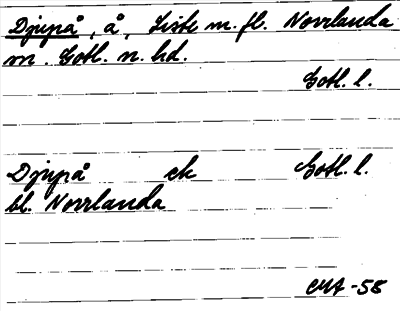 Djupå, å, Liste m. fl. Norrlanda
m. Gotl. n. hd.
Gotl. l.
Djupå ek Gotl. l.
bl. Norrlanda
CMA -58